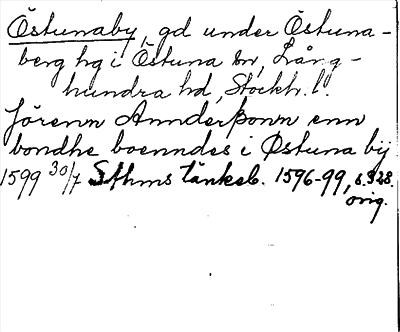 Östunaby, gd under Östuna-
berg hg i Östuna sn, Lång-
hundra hd, Stockh. l.
Jörenn Annderßonn enn
bondhe boenndes i Østuna bÿ
1599 30/7 Sthms tänkeb. 1596-99, s. 328.
orig.